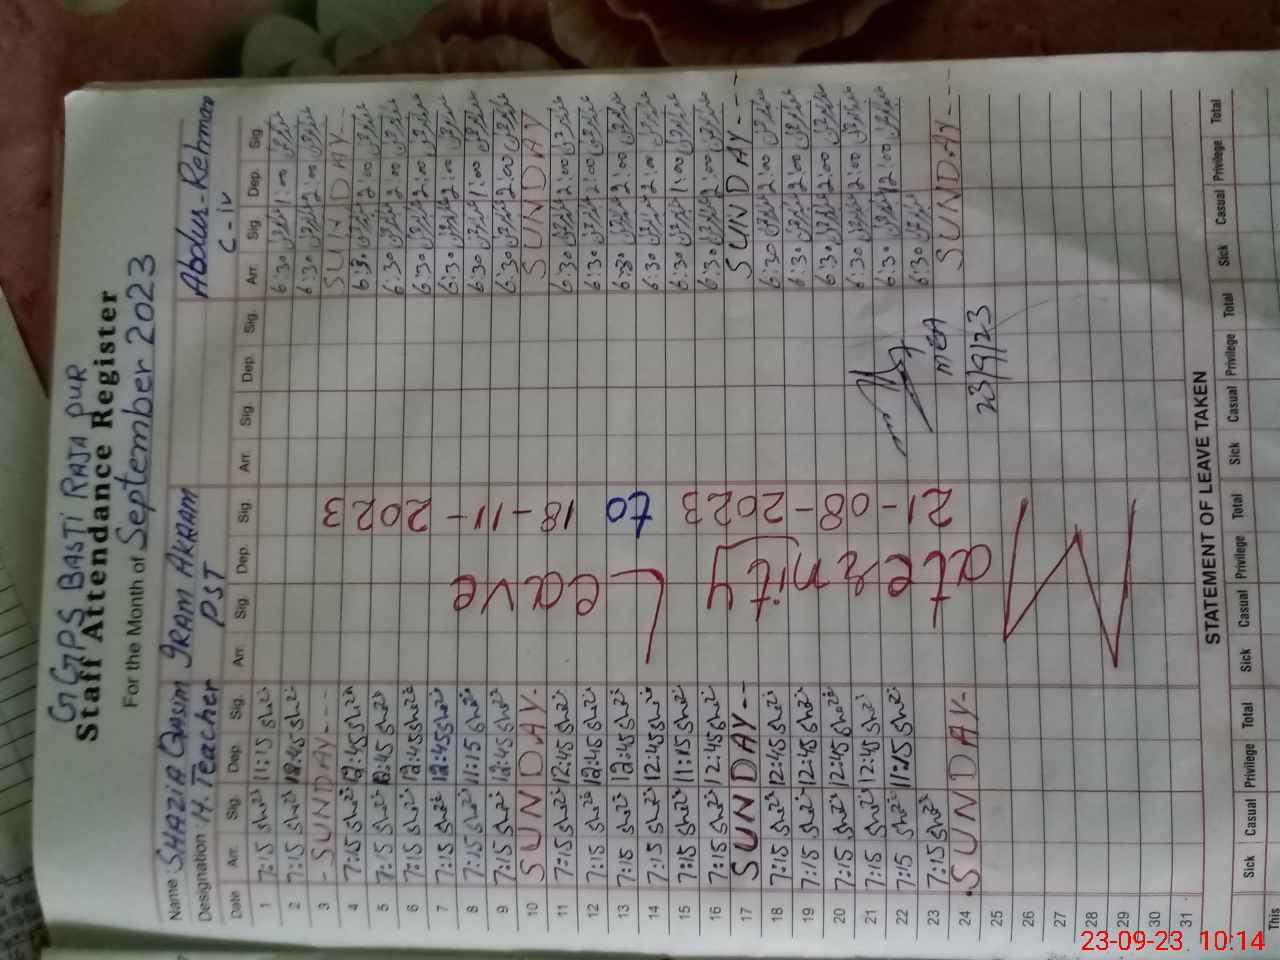 GGPS BASTI RAJA PUR
Staff Attendance Register
For the Month of September 2023
Name SHAZIA QASIM IRAM AKRAM Abdur-Rehman
Designation H. Teacher PST C-iv
Date Arr. Sig. Dep. Sig. Arr. Sig. Dep. Sig. Arr. Sig. Dep. Sig. Arr. Sig. Dep. Sig.
1 7:15 11:15 6:30 1:00
2 7:15 12:45 6:30 2:00
3 - SUNDAY --- SUNDAY ---
4 7:15 12:45 6:30 2:00
5 7:15 12:45 6:30 2:00
6 7:15 12:45 6:30 2:00
7 7:15 12:45 6:30 2:00
8 7:15 11:15 6:30 1:00
9 7:15 12:45 6:30 2:00
10 SUNDAY- SUNDAY
11 7:15 12:45 6:30 2:00
12 7:15 12:45 6:30 2:00
13 7:15 12:45 6:30 2:00
14 7:15 12:45 6:30 2:00
15 7:15 11:15 6:30 1:00
16 7:15 12:45 6:30 2:00
17 SUNDAY-- SUNDAY---
18 7:15 12:45 6:30 2:00
19 7:15 12:45 6:30 2:00
20 7:15 12:45 6:30 2:00
21 7:15 12:45 6:30 2:00
22 7:15 11:15 6:30 12:00
23 7:15 6:30
24 .SUNDAY- SUNDAY---
25
26
27
28
29
30
31
Maternity Leave
21-08-2023 to 18-11-2023
MEA
23/9/23
STATEMENT OF LEAVE TAKEN
Sick Casual Privilege Total Sick Casual Privilege Total Sick Casual Privilege Total Sick Casual Privilege Total
This
23-09-23 10:14